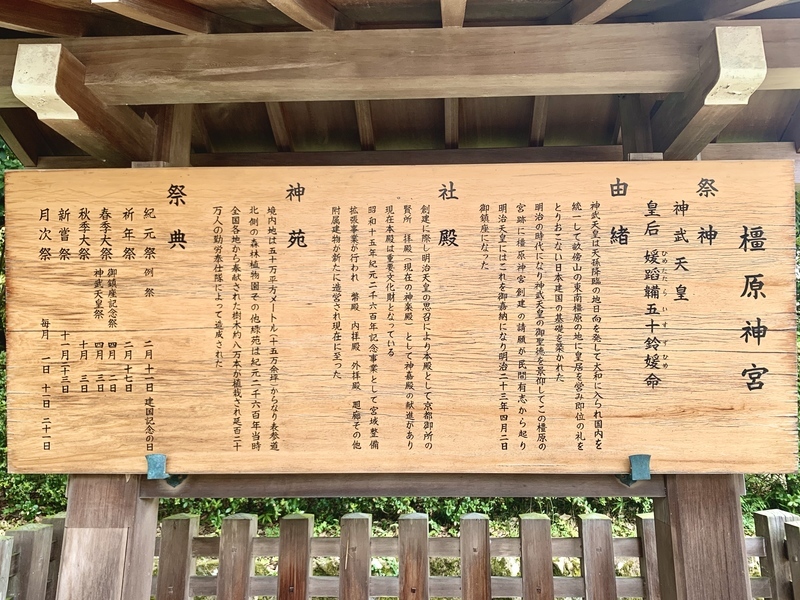 橿原神宮
祭神
神武天皇
皇后 媛蹈韛五十鈴媛命
ひめたたらいすずひめ
由緒
神武天皇は天孫降臨の地日向を発して大和に入られ国内を
統一して畝傍山の東南橿原の地に皇居を営み即位の礼を
とりおこない日本建国の基礎を築かれた
明治の時代になり神武天皇の御聖徳を景仰してこの橿原の
宮跡に橿原神宮創建の請願が民間有志から起り
明治天皇にはこれを御嘉納になり明治二十三年四月二日
御鎮座になった
社殿
創建に際し明治天皇の思召により本殿として京都御所の
賢所 拝殿（現在の神楽殿）として神嘉殿の献進があり
現在本殿は重要文化財となっている
昭和十五年紀元二千六百年記念事業として宮域整備
拡張事業が行われ 幣殿 内拝殿 外拝殿 廻廊その他
附属建物が新たに造営され現在に至った
神苑
境内地は五十万平方メートル（十五万余坪）からなり表参道
北側の森林植物園その他緑苑は紀元二千六百年当時
全国各地から奉献された樹木約八万本が植栽され延百二十
万人の勤労奉仕隊によって造成された
祭典
紀元祭 例祭 二月十一日 建国記念の日
祈年祭 二月十七日
春季大祭 御鎮座記念祭 四月二日
神武天皇祭 四月三日
秋季大祭 十月三日
新嘗祭 十一月二十三日
月次祭 毎月 一日 十一日 二十一日